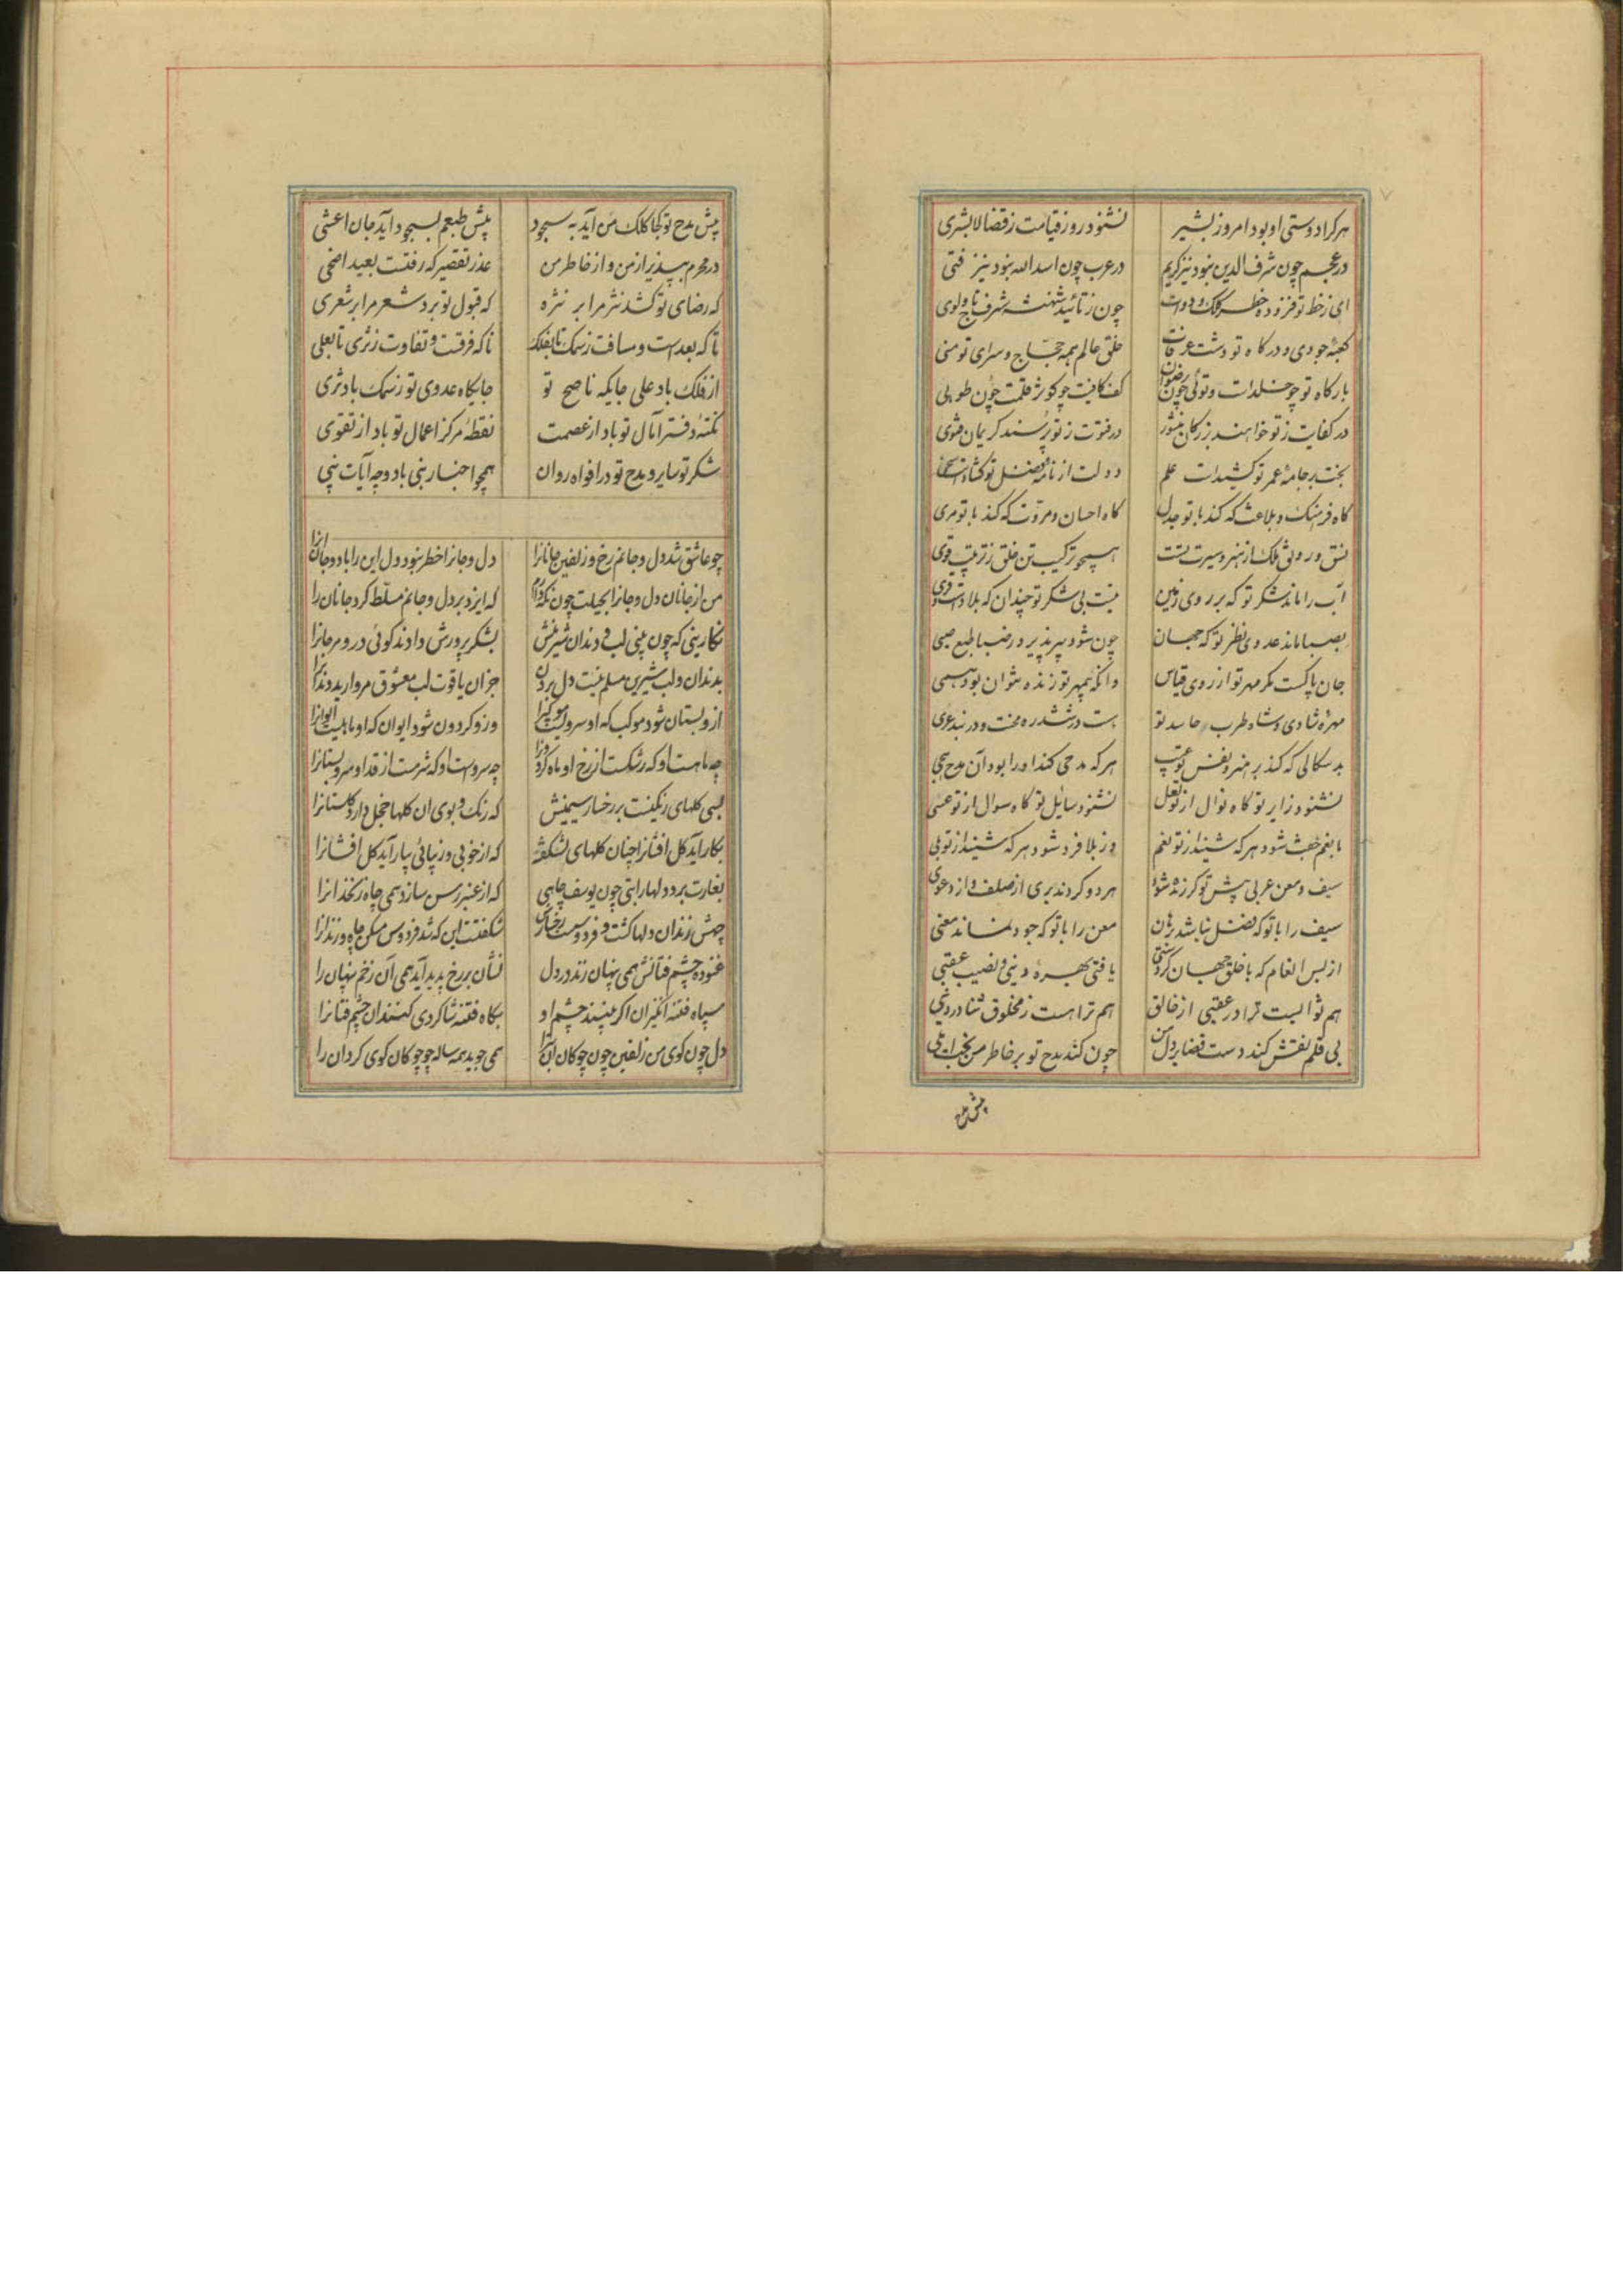 هرکرا دوستی او بود امروز بشیر نشنود روز قیامت ز قضا لابشری
در عجم چون شرف الدین نبود نیز کریم در عرب چون اسد الله نبود نیز فتی
ای ز خط تو فزوده خطر کلک و دوات چون ز تائید شهنشه شرف تاج و لوی
کعبهٔ جودی و درکاه تو دشت عرفات خلق عالم همه حجاج و سرای تو منی
بارکاه تو چو خلدات و توئی چون رضوان کف کافیت چو کوثر قلمت چون طوبی
در کفایت ز تو خواهند بزرکان منشور در فتوت ز تو پرسند کریمان فتوی
بخت بر جامهٔ عمر تو کشیدات علم دولت از نامهٔ فضل تو کشادت
کاه فرهنک و بلاغت که کند با تو جدل کاه احسان و مروت که کند با تو مری
نسق و رونق ملک از هنر و سیرت تست همچو ترکیب تن خلق ز ترتیب قوی
آب را ماند شکر تو که بر روی زمین نیست بی شکر تو چندان که بلادست و قری
بصبا ماند عدوی نظر تو که جهان چون شود پیر پذیرد ز صبا طبع صبی
جان پاکست مکر مهر تو از روی قیاس وانکه بیمهر تو زنده نتوان بود همی
مهرهٔ شادی و شاه طرب حاسد تو هست در ششدره محنت و در بند عری
بدسکالی که کند بر هنر و نفس تو عیب هر که مدحی کند او را بود آن مدح هجی
نشنود زایر تو کاه نوال از تو لعل نشنود سایل تو کاه سوال از تو عسی
با نعم جفت شود هر که شنید از تو نعم وز بلا فرد شود هر که شنید از تو بلی
سیف و معن عربی پیش تو کر زنده شود هر دو کردند بری از صلف و از دعوی
سیف را با تو که فضل نباشد برهان معن را با تو که جود نماند معنی
از بس انعام که با خلق جهان کردستی یافتی بهرهٔ دینی و نصیب عقبی
هم ثوابست ترا در عقبی از خالق هم تراست ز مخلوق ثنا در دنیی
بی قلم نقش کند دست قضا بر دل من چون کند مدح تو بر خاطر من بخت املی
پیش مدح
پیش مدح تو کجا کلک من آید به سجود پیش طبعم بسجود آید جان اعشی
در محرم بپذیر از من و از خاطر من عذر تقصیر که رفتست بعید اضحی
که رضای تو کشد نثر مرا بر نثره که قبول تو برد شعر مرا بر شعری
تا که بعدست و مسافت ز سمک تا بفلک تا که فرقست و تفاوت ز ثری تا بعلی
از فلک باد علی جایکه ناصح تو جایکاه عدوی تو ز سمک باد ثری
نکتهٔ دفتر آمال تو باد از عصمت نقطهٔ مرکز اعمال تو باد از تقوی
شکر تو سایر و مدح تو در افواه روان همچو اخبار نبی باد و چه آیات نبی
چو عاشق شد دل و جانم رخ و زلفین جانانرا دل و جانرا خطر نبود دل این را باد و جان انرا
من از جانان دل و جانرا بحیلت چون نکه دارم که ایزد بر دل و جانم مسلط کرد جانان را
نکارینی که چون بینی لب و دندان شیرینش بشکر پرورش دادند کوئی در و مرجانرا
بدندان و لب شیرین مسلم نیست دل بردن جز ان یاقوت لب معشوق مروارید دندانرا
ازو بستان شود موکب که او سروست موکب را وزو کردون شود ایوان که او ماهیست ایوانرا
چه ماهست او که رشکست از رخ او ماه کردونرا چه سروست او که شرمست از قد او سرو بستانرا
بسی کلهای رنکینست بر رخسار سیمینش که رنک و بوی ان کلها خجل دارد کلستانرا
بکار آید کل افشانرا چنان کلهای نشکفته که از خوبی و زیبائی بیاراید کل افشانرا
بغارت برد دلها را بتی چون یوسف چاهی که از عنبر رسن سازد همی چاه زنخدانرا
چهش زندان دلها کشت و فردوست رخسارش شکفتست این که شد فردوس مسکن چاه و زندانرا
غنوده چشم فتانش همی پنهان زند در دل نشان بر رخ پدید آید همی آن زخم پنهان را
سپاه فتنه انکیزان اکر بینند چشم او بکاه فتنه شاکردی کنند ان چشم فتانرا
دل چون کوی من زلفین چون چوکان آن همی جوید همه ساله چو چوکان کوی کردان را